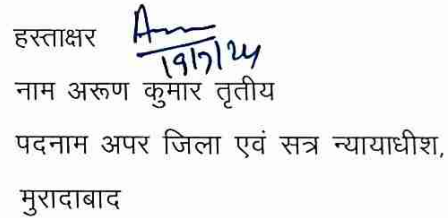 हस्ताक्षर
19/7/24
नाम अरूण कुमार तृतीय
पदनाम अपर जिला एवं सत्र न्यायाधीश,
मुरादाबाद